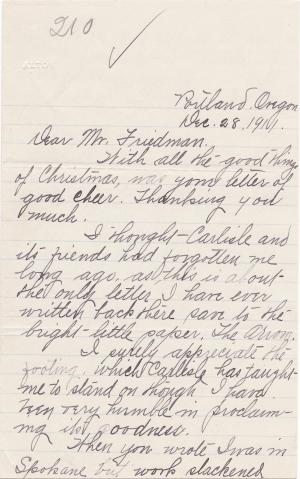 210
Portland, Oregon
Dec. 28, 1911.
Dear Mr. Friedman.
With all the good things
of Christmas, was your letter of
good cheer. Thanking you
much.
I thought Carlisle and
its friends had forgotten me
long ago, as this is about
the only letter I have ever
written back there save to the
bright little paper, The Arrow.
I surely appreciate the
footing, which Carlisle has taught
me to stand on though I have
been very humble in proclaim-
ing its goodness.
When you wrote I was in
Spokane but work slackened